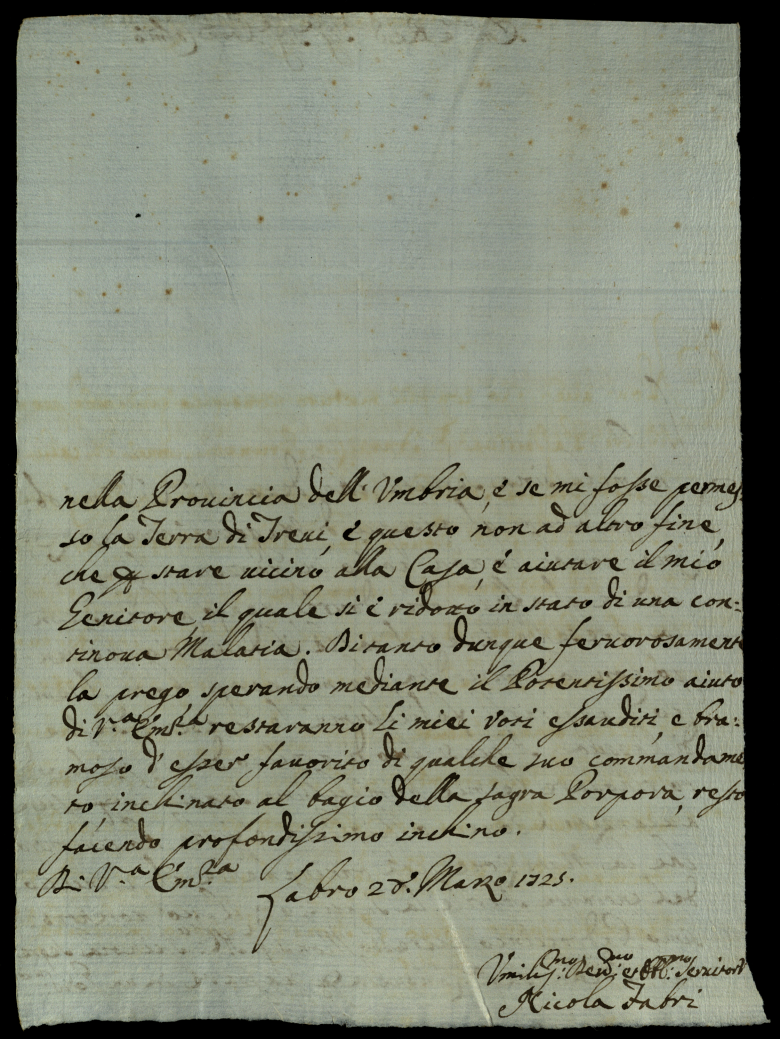 nella Prouincia dell' Vmbria, é se mi fosse permes-
so la Terra di Treui é questo non ad altro fine,
che stare uicino alla Casa, é aiutare il mio
Genitore il quale si é ridotto in stato di una con=
tinoua Malatia. Di tanto dunque feruorosamente
la prego sperando mediante il Potentissimo aiuto
di V.ª Em.ª restaranno li miei voti essauditi, e bra=
moso d' esser fauorito di qualche suo commandame
to, inchinato al bagio della sagra Porpora, resto
facendo profondissimo inchino.
Di V.ª Em.ª
Labro 28. Marzo 1725.
Vmilis.mo Deu.mo et Obb.mo Seruitore
Nicola Fabri